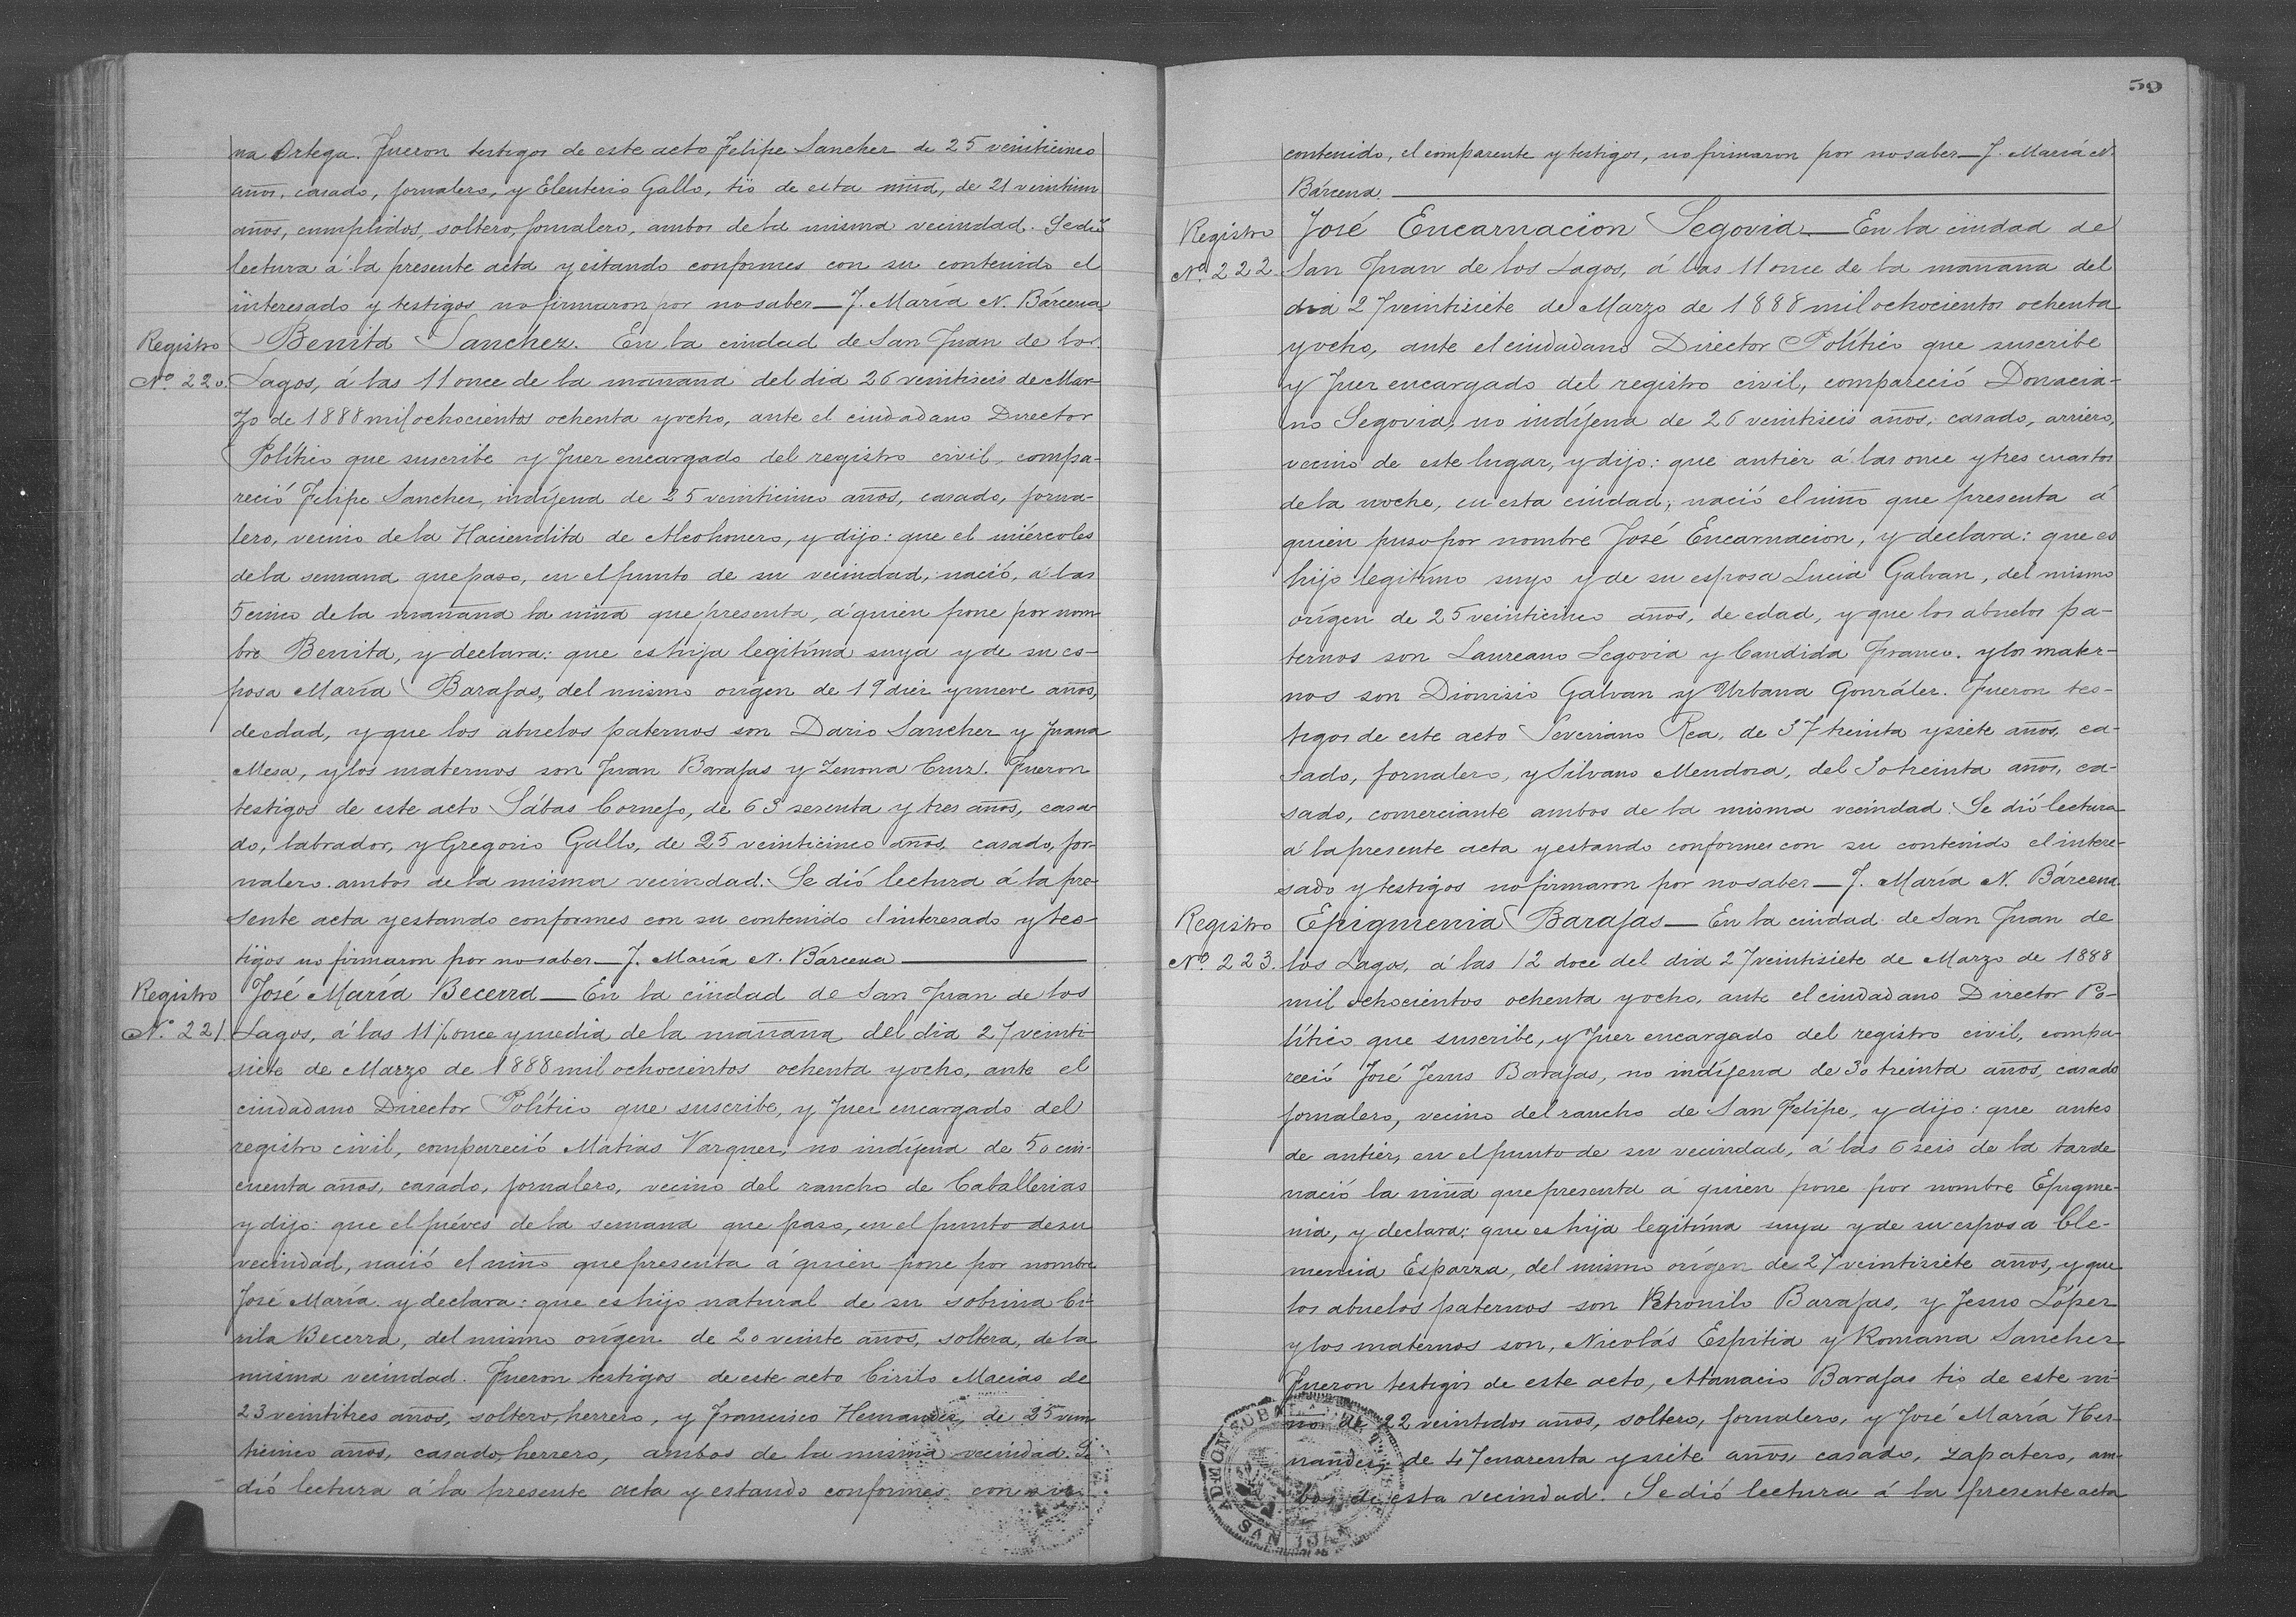 na Ortega. Fueron testigos de este acto Felipe Sanchez de 25 veinticinco
años, casado, jornalero, y Eleuterio Gallo, tio de esta niña, de 21 veintiun
años, cumplidos, soltero, jornalero, ambos de la misma vecindad. Se dió
lectura á la presente acta y estando conformes con su contenido el
interesado y testigos no firmaron por no saber — J. María N. Bárcena
Registro
Nº 220.
Benita Sanchez. En la ciudad de San Juan de los
Lagos, á las 11 once de la mañana del dia 26 veintiseis de Mar-
zo de 1888 mil ochocientos ochenta y ocho, ante el ciudadano Director
Político que suscribe y Juez encargado del registro civil, compa-
reció Felipe Sanchez, indígena de 25 veinticinco años, casado, jorna-
lero, vecino de la Haciendita de Alcohonero, y dijo: que el miércoles
de la semana que paso, en el punto de su vecindad, nació, á las
5 cinco de la mañana la niña que presenta, á quien pone por nom-
bre Benita, y declara: que es hija legitíma suya y de su es-
posa María Barajas, del mismo orígen de 19 diez y nueve años,
de edad, y que los abuelos paternos son Dario Sanchez y Juana
Mesa, y los maternos son Juan Barajas y Zenona Cruz. Fueron
testigos de este acto Sábas Cornejo, de 63 sesenta y tres años, casa-
do, labrador, y Gregorio Gallo, de 25 veinticinco años, casado, jor-
nalero. ambos de la misma vecindad. Se dió lectura á la pre-
sente acta y estando conformes con su contenido el interesado y tes-
tigos no firmaron por no saber — J. María N. Bárcena
Registro
Nº. 221.
José María Becerra — En la ciudad de San Juan de los
Lagos, á las 11½ once y media de la mañana del dia 27 veinti-
siete de Marzo de 1888 mil ochocientos ochenta y ocho, ante el
ciudadano Director Político que suscribe, y Juez encargado del
registro civil, compareció Matias Vazquez, no indígena de 50 cin-
cuenta años, casado, jornalero, vecino del rancho de Caballerias
y dijo: que el juéves de la semana que paso, en el punto de su
vecindad, nació el niño que presenta á quien pone por nombre
José María. y declara: que es hijo natural de su sobrina Ci-
rila Becerra, del mismo orígen de 20 veinte años, soltera, de la
misma vecindad. Fueron testigos de este acto Cirilo Macias de
23 veintitres años, soltero, herrero, y Francisco Hernandez, de 25 vein
ticinco años, casado, herrero, ambos de la misma vecindad. Se
dió lectura á la presente acta y estando conformes con su
59
contenido, el comparente y testigos, no firmaron por no saber — J. María N.
Bárcena.
Registro
Nº. 222.
José Encarnacion Segovia — En la ciudad de
San Juan de los Lagos, á las 11 once de la mañana del
dia 27 veintisiete de Marzo de 1888 mil ochocientos ochenta
y ocho, ante el ciudadano Director Político que suscribe
y Juez encargado del registro civil, compareció Donacia-
no Segovia, no indígena de 26 veintiseis años, casado, arriero,
vecino de este lugar, y dijo: que antier á las once y tres cuartos
de la noche, en esta ciudad, nació el niño que presenta á
quien puso por nombre José Encarnacion, y declara: que es
hijo legitímo suyo y de su esposa Lucia Galvan, del mismo
orígen de 25 veinticinco años, de edad, y que los abuelos pa-
ternos son Laureano Segovia y Candida Franco. y los mater-
nos son Dionisio Galvan y Urbana González. Fueron tes-
tigos de este acto Severiano Rea, de 37 treinta y siete años, ca-
sado, jornalero, y Silvano Mendoza, del 30 treinta años, ca-
sado, comerciante ambos de la misma vecindad. Se dió lectura
á la presente acta y estando conformes con su contenido el intere-
sado y testigos no firmaron por no saber — J. María N. Bárcena.
Registro
Nº. 223.
Epigmenia Barajas — En la ciudad de San Juan de
los Lagos, á las 12 doce del dia 27 veintisiete de Marzo de 1888
mil ochocientos ochenta y ocho, ante el ciudadano Director Po-
lítico que suscribe, y Juez encargado del registro civil, compa-
reció José Jesus Barajas, no indígena de 30 treinta años, casado
jornalero, vecino del rancho de San Felipe, y dijo: que antes
de antier, en el punto de su vecindad, á las 6 seis de la tarde
nació la niña que presenta á quien pone por nombre Epigme-
nia, y declara: que es hija legitíma suya y de su esposa Cle-
mencia Esparza, del mismo orígen de 27 veintisiete años, y que
los abuelos paternos son Petronilo Barajas, y Jesus López
y los maternos son, Nicolás Espitia y Romana Sanchez
Fueron testigos de este acto, Atanacio Barajas tio de este ni
ño, de 22 veintidos años, soltero, jornalero, y José María Her-
nandez, de 47 cuarenta y siete años casado, zapatero, am-
bos de esta vecindad. Se dió lectura á la presente acta
SAN JUAN